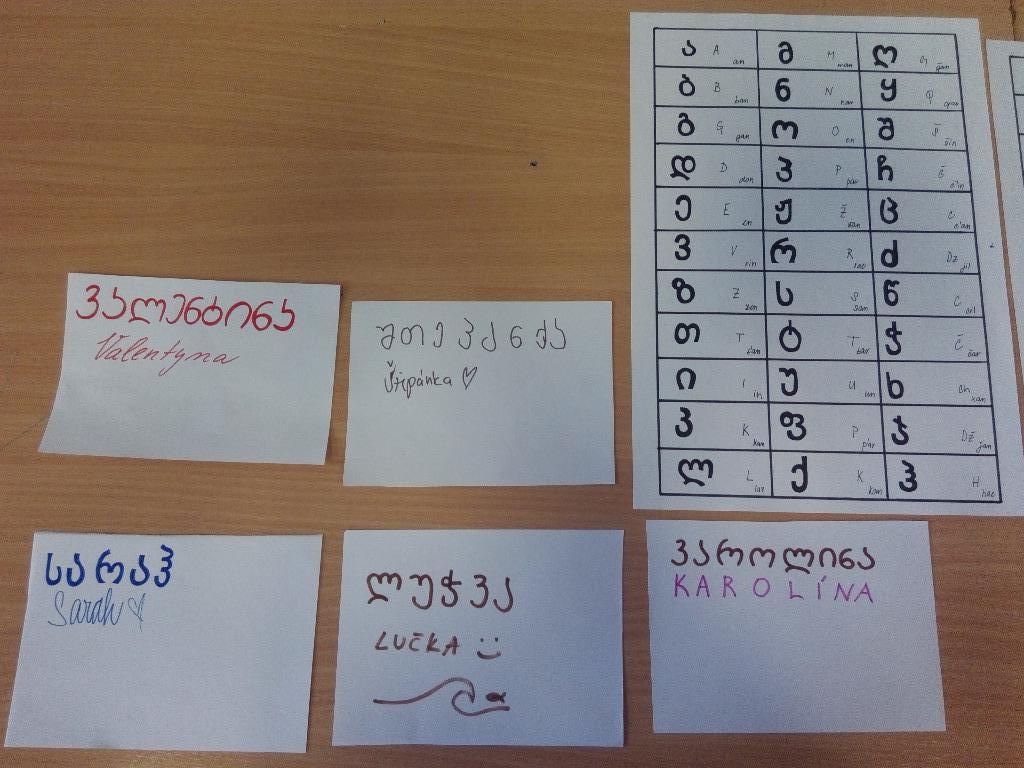 ა A an მ M man ღ G ğan
ბ B ban ნ N nar ყ Q qar
გ G gan ო O on შ Š šin
დ D don პ P par ჩ Č čin
ე E en ჟ Ž žan ც C can
ვ V vin რ R rae ძ Dz jil
ზ Z zen ს S san წ C cil
თ T tan ტ T tar ჭ Č čar
ი I in უ U un ხ Ch xan
კ K kan ფ P par ჯ DŽ jan
ლ L las ქ K kan ჰ H hae
ვალენტინა
Valentyna
შთეპანკა
Štěpánka ♡
სარაჰ
Sarah ♡
ლუჭკა
LUČKA :)
კაროლინა
KAROLÍNA